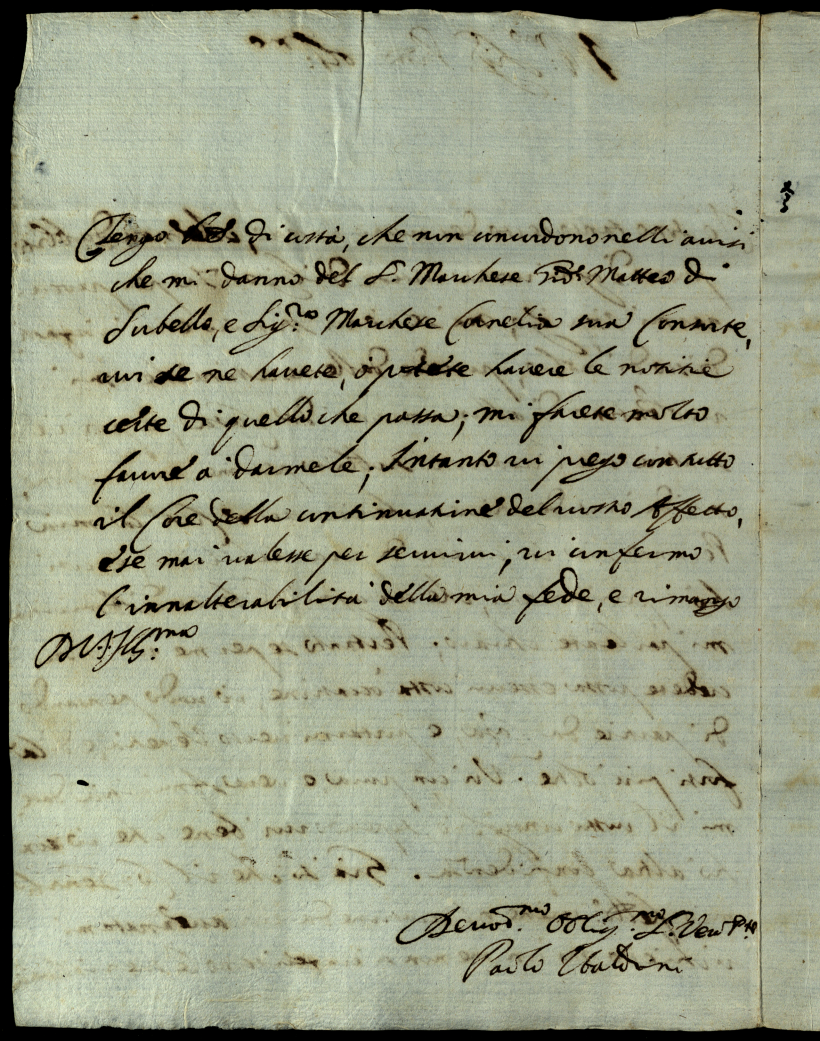 Tengo di costà, che non concordono nelli avvisi
che mi danno del S. Marchese Matteo di
Subello, e Sig.ra Marchese Cornelia sua Consorte,
voi se ne havete, ò potete havere le notitie
certe di quello che passa; mi farete molto
favore a darmele; Intanto vi prego con tutto
il Core della continuatione del vostro Affetto,
e se mai valesse per servirvi, vi confermo
l'innalterabilità della mia fede, e rimango
Di V.S. Ill:ma
Devod.mo Oblig.mo S. Vero
Paolo Ubaldini